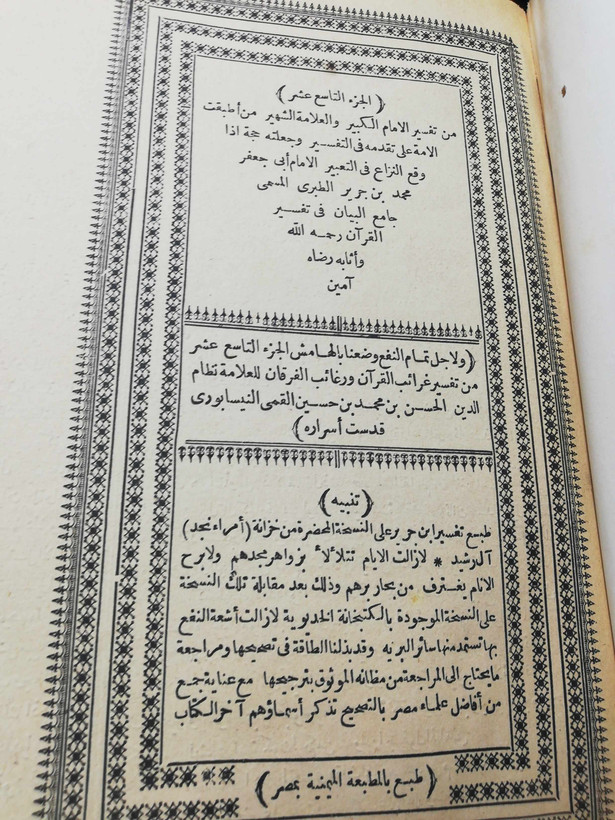 (الجزء التاسع عشر)
من تفسير الامام الكبير والعلامة الشهير من أطبقت
الامة على تقدمه فى التفسير وجعلته حجة اذا
وقع النزاع فى التعبير الامام أبى جعفر
محمد بن جرير الطبرى المسمى
جامع البيان فى تفسير
القرآن رحمه الله
وأثابه رضاه
آمين
(ولاجل تمام النفع وضعنا بالهامش الجزء التاسع عشر
من تفسير غرائب القرآن ورغائب الفرقان للعلامة نظام
الدين الحسن بن محمد بن حسين القمى النيسابورى
قدست أسراره)
(تنبيه)
طبع تفسير ابن جرير على النسخة المحضرة من خزانة (أمراء نجد)
آل رشيد * لازالت الايام تتلألأ بزواهر مجدهم ولا برح
الانام يغترف من بحار برهم وذلك بعد مقابلة تلك النسخة
على النسخة الموجودة بالكتبخانة الخديوية لازالت أشعة النفع
بها تستمد منها سائر البريه وقد بذلنا الطاقة فى تصحيحها ومراجعة
ما يحتاج الى المراجعة من مظانه الموثوق بترجيحها مع عناية جمع
من أفاضل علماء مصر بالتصحيح تذكر أسماؤهم آخر الكتاب
(طبع بالمطبعة الميمنية بمصر)